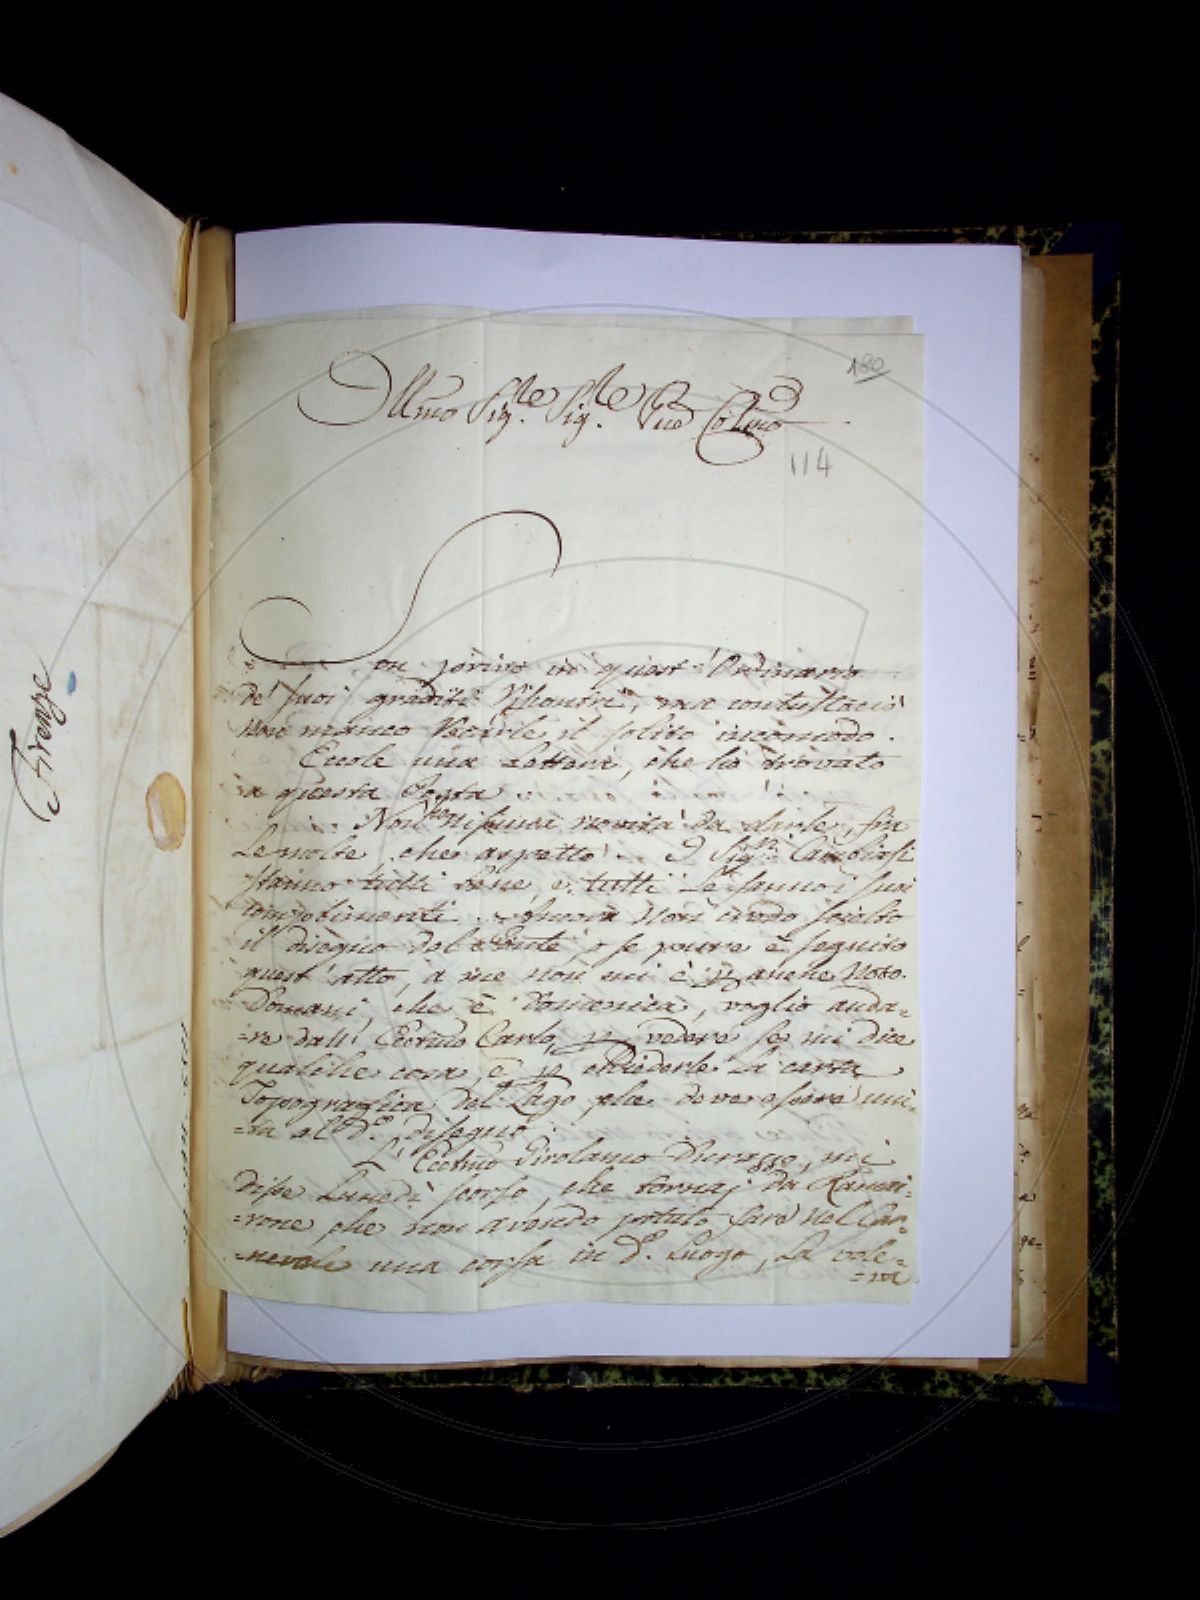 180
Illmo Sig.re Sig.re Pne Colmo
114
Son privo in quest'Ordinario
de' suoi graditi Riscontri, ma contuttociò
non manco recarle il solito incomodo.
Eccole una Lettera, che ho trovato
a questa Posta.
Non ho nissuna novità da darle, fra
le molte che aspetto. I Sig.ri Cambiasi
stanno tutti bene, e tutti le fanno i suoi
complimenti. Ancora non credo scielto
il disegno del Ponte, o se pure è seguito
quest'atto, a me non mi è p anche noto.
Domani, che è Domenica, voglio anda=
=re dall'Eccmo Carlo, p vedere se mi dice
qualche cosa, e p chiederle la carta
Topografica del Lago, che deve essere uni=
=ta al d.o disegno.
L'Eccmo Girolamo Durazzo, mi
disse Lunedì scorso, che tornaj da Ramai=
=rone che non avendo potuto fare nel Car=
=nevale una corsa in d.o Luogo, la vole=
=va
Firenze